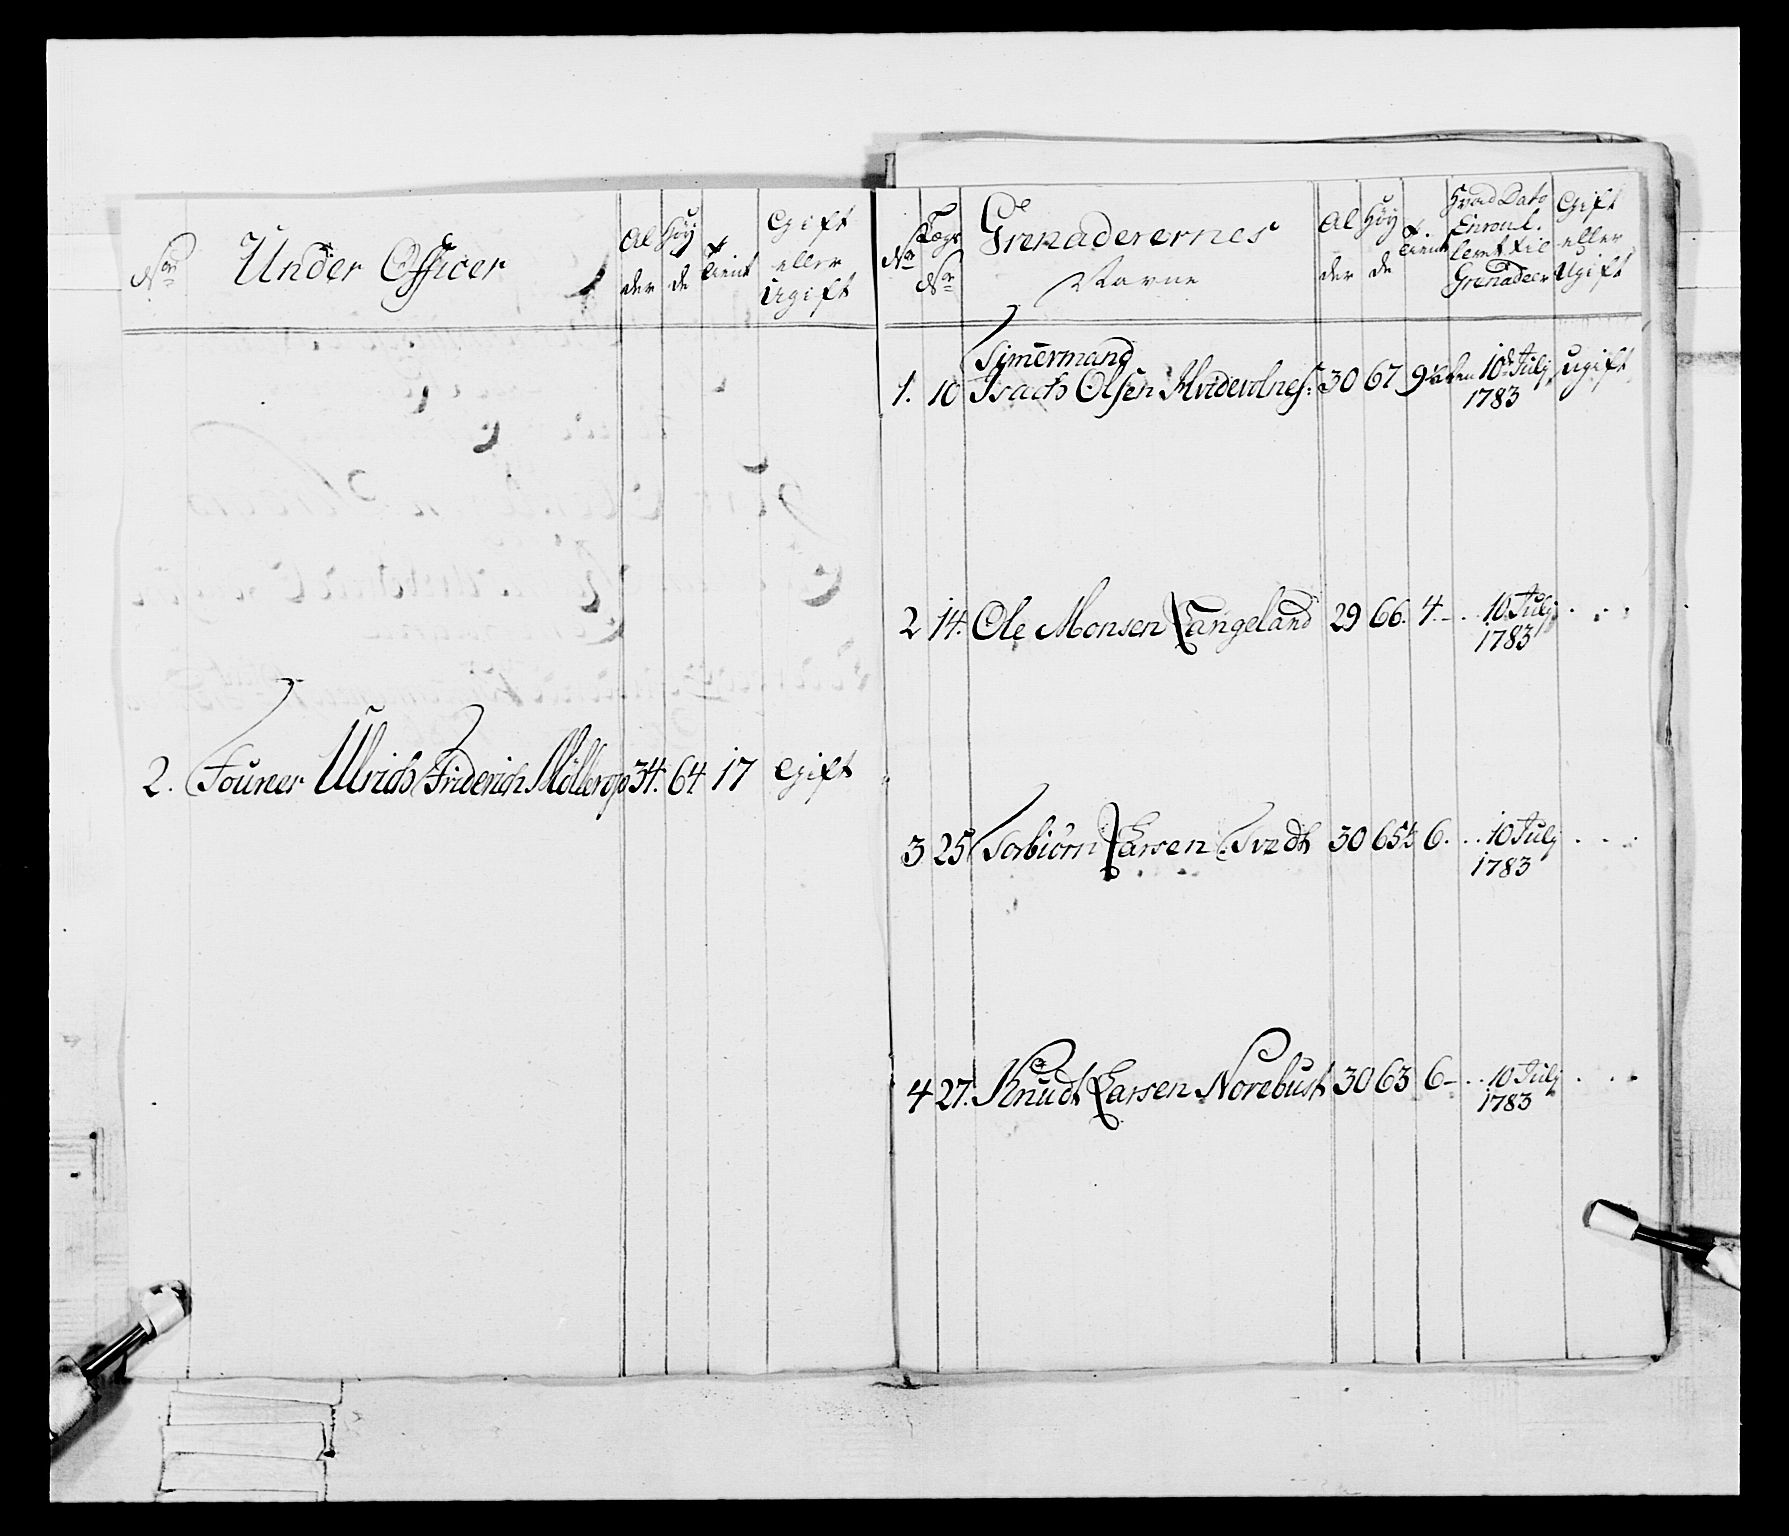 No Under Officer Al der Høy de Tient Gift eller Ugift
2. Fourier Ulrich Friderich Møllerop 34. 64 17 Gift
No Lægs No Grenaderernes Navne Al der Høy de Tient Hvad Dato Enroul. leret til Grenadeer Gift eller Ugift
Timermand
1. 10 Isach Olsen 30 67 9 den 10de Julj ugift
1783
2 14. Ole Monsen Langeland 29 66. 4. - . . 10 Julj . . .
1783
3 25 Torbiörn Larsen Tvedt 30 65½ 6. . . 10 Julj . . .
1783
4 27. Knudt Larsen Norebust 30 63 6 - . . 10 Julj . . .
1783